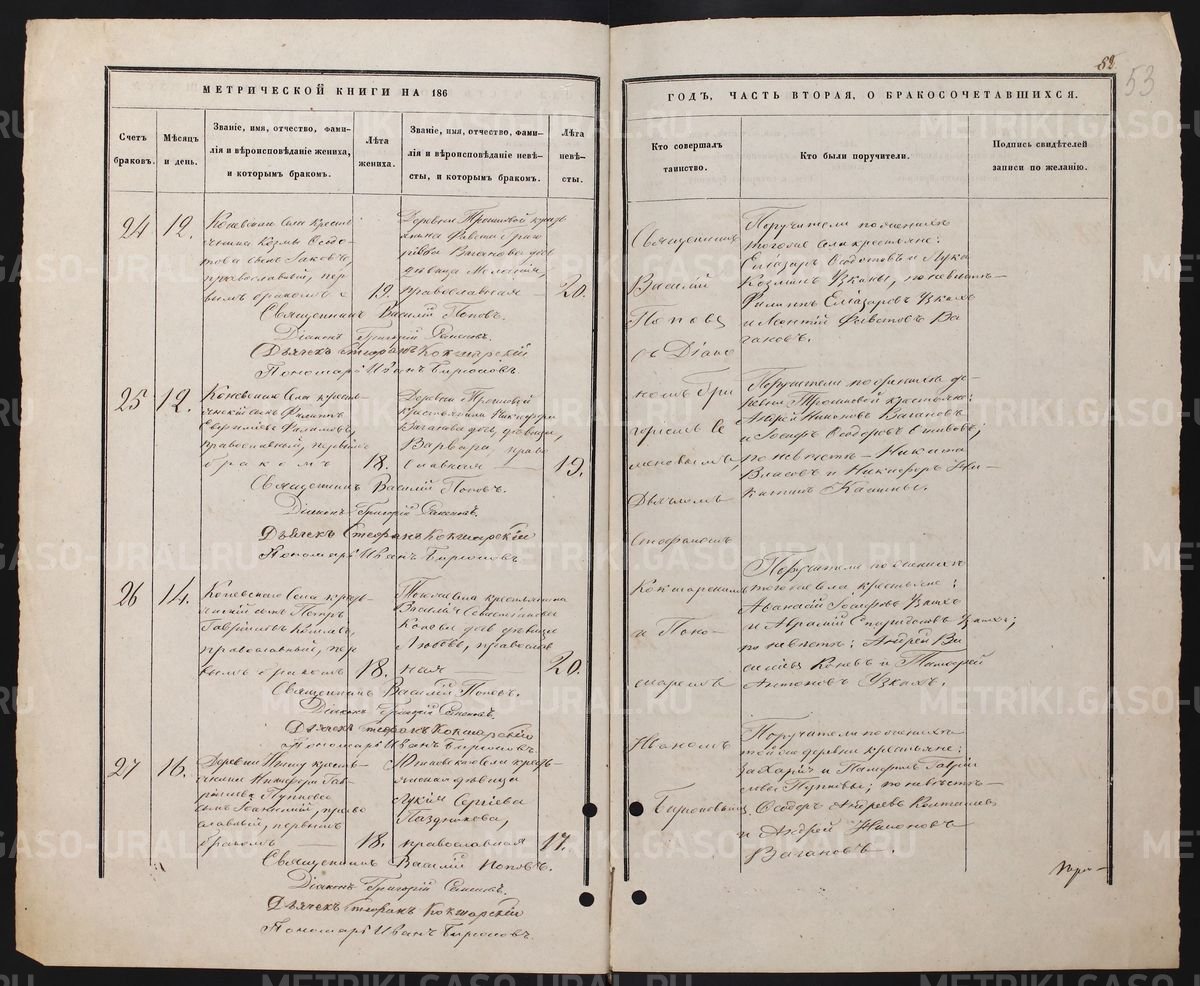 52.
53
МЕТРИЧЕСКОЙ КНИГИ НА 186
Счетъ браковъ.
Мѣсяцъ и день.
Званіе, имя, отчество, фами-
лія и вѣроисповѣданіе жениха,
и которымъ бракомъ.
Лѣта
жениха.
Званіе, имя, отчество, фами-
лія и вѣроисповѣданіе невѣ-
сты, и которымъ бракомъ.
Лѣта
невѣ-
сты.
24
12.
Коневскаго села кресть
янина Козмы Ѳедо-
това сынъ Іаковъ,
православный, пер
вымъ бракомъ
19.
Деревни Трошковой кресть
янина
Ваганова дочь
дѣвица
православная
20.
Священникъ Василій Поповъ.
Діаконъ Григорій Семеновъ.
Дьячекъ Стефанъ Кокшарскій
Пономарь Иванъ Бирюковъ.
25
12.
Коневскаго села кресть-
янскій сынъ Филиппъ
православный, первымъ
бракомъ
18.
Деревни Трошковой
крестьянина Никифора
Ваганова дочь, дѣвица,
Варвара, право
славная
19.
Священникъ Василій Поповъ.
Діаконъ Григорій Семеновъ.
Дьячекъ Стефанъ Кокшарскій
Пономарь Иванъ Бирюковъ
26
14.
Коневскаго села кресть-
янскій сынъ Петръ
Гавриловъ
православный, пер
вымъ бракомъ
18.
Тогоже села крестьянина
Василія Севастіанова
Конева дочь дѣвица
Любовь, православ
ная
20.
Священникъ Василій Поповъ.
Діаконъ Григорій Семеновъ.
Дьячекъ Стефанъ Кокшарскій
Пономарь Иванъ Бирюковъ.
27
16.
Деревни кресть-
янина Никифора Гав-
рилова Пупкова
сынъ Іоанникій, право
славный, первымъ
бракомъ
18.
села кресть-
янская дѣвица
Лукія Сергіева
Паздникова,
православная
17.
Священникъ Василій Поповъ.
Діаконъ Григорій Семеновъ.
Дьячекъ Стефанъ Кокшарскій
Пономарь Иванъ Бирюковъ.
ГОДЪ, ЧАСТЬ ВТОРАЯ, О БРАКОСОЧЕТАВШИХСЯ.
Кто совершалъ
таинство.
Кто были поручители.
Подпись свидѣтелей
записи по желанію.
Священникъ
Василій
Поповъ
съ Діако
номъ Гри
горіемъ Се
меновымъ,
Дьячкомъ
Стефаномъ
Кокшарскимъ
и Поно-
маремъ
Иваномъ
Бирюковымъ
Поручители по женихѣ
тогоже села крестьяне:
Елеазаръ Ѳедотовъ и Лука
Козминъ Узкихъ, по невѣстѣ
Филиппъ Елеазаровъ Узкихъ
и Леонтій Ва
гановъ.
Поручители по женихѣ де-
ревни Трошковой крестьяне:
Андрей Никоновъ Вагановъ
и Іосифъ Ѳедоровъ
по невѣстѣ – Никита
Власовъ и Никифоръ Ни-
китинъ
Поручители по женихѣ
тогоже села крестьяне:
Аѳанасій Іосифовъ Узкихъ
и Аврамій Спиридоновъ Узкихъ;
по невѣстѣ: Андрей Ва
сильевъ Коневъ и Тимофей
Антоновъ Узкихъ.
Поручители по женихѣ
тойже деревни крестьяне:
Захарій и Памфилъ Гаври
ловы Пупковы; по невѣстѣ
Ѳедоръ Андреевъ
и Андрей Никоновъ
Вагановъ.
METRIKI.GASO-URAL.RU